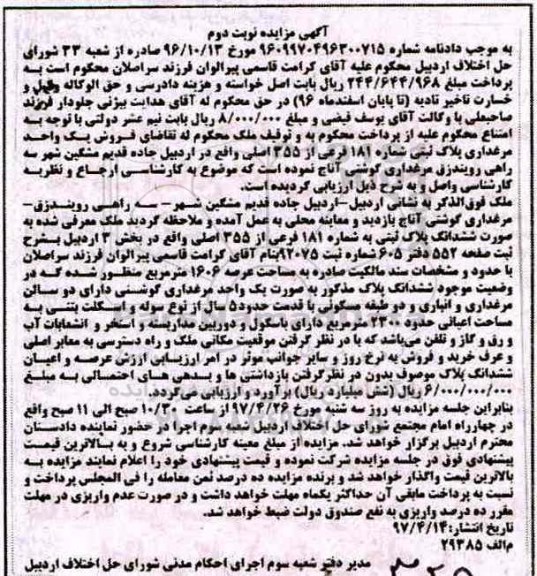 آگهی مزایده نوبت دوم
به موجب دادنامه شماره ۹۶۰۹۹۷۰۴۹۶۳۰۰۷۱۵ مورخ ۹۶/۱۰/۱۳ صادره از شعبه ۳۳ شورای
حل اختلاف اردبیل محکوم علیه آقای کرامت قاسمی پیرالوان فرزند سراصلان محکوم است به
پرداخت مبلغ ۲۴۴/۶۴۴/۹۶۸ ریال بابت اصل خواسته و هزینه دادرسی و حق الوکاله وکیل و
خسارت تاخیر تادیه (تا پایان اسفندماه ۹۶) در حق محکوم له آقای هدایت بیژنی جلودار فرزند
صاحبعلی با وکالت آقای یوسف فیضی و مبلغ ۸/۰۰۰/۰۰۰ ریال بابت نیم عشر دولتی با توجه به
امتناع محکوم علیه از پرداخت محکوم به و توقیف ملک محکوم له تقاضای فروش یک واحد
مرغداری پلاک ثبتی شماره ۱۸۱ فرعی از ۳۵۵ اصلی واقع در اردبیل جاده قدیم مشکین شهر سه
راهی رویندزق مرغداری گوشتی آناج نموده است که موضوع به کارشناسی ارجاع و نظریه
کارشناسی واصل و به شرح ذیل ارزیابی گردیده است.
ملک فوق‌الذکر به نشانی اردبیل-اردبیل جاده قدیم مشکین شهر- سه راهی رویندزق-
مرغداری گوشتی آناج بازدید و معاینه محلی به عمل آمده و ملاحظه گردید ملک معرفی شده به
صورت ششدانگ پلاک ثبتی به شماره ۱۸۱ فرعی از ۳۵۵ اصلی واقع در بخش ۳ اردبیل بشرح
ثبت صفحه ۵۵۲ دفتر ۶۰۵ شماره ثبت ۹۲۰۷۵بنام آقای کرامت قاسمی پیرالوان فرزند سراصلان
با حدود و مشخصات سند مالکیت صادره به مساحت عرصه ۱۶۰۶ مترمربع منظور شده که در
وضعیت موجود ششدانگ پلاک مذکور به صورت یک واحد مرغداری گوشتی دارای دو سالن
مرغداری و انباری و دو طبقه مسکونی با قدمت حدود۵ سال از نوع سوله و اسکلت بتنی به
مساحت اعیانی حدود ۲۳۰۰ مترمربع دارای باسکول و دوربین مداربسته و استخر و انشعابات آب
و برق و گاز و تلفن می‌باشد که با در نظر گرفتن موقعیت مکانی ملک و راه دسترسی به معابر اصلی
و عرف خرید و فروش به نرخ روز و سایر جوانب موثر در امر ارزیابی ارزش عرصه و اعیان
ششدانگ پلاک موصوف بدون در نظرگرفتن بازداشتی ها و بدهی های احتمالی به مبلغ
۶/۰۰۰/۰۰۰/۰۰۰ ریال (شش میلیارد ریال) برآورد و ارزیابی می‌گردد.
بنابراین جلسه مزایده به روز سه شنبه مورخ ۹۷/۴/۲۶ از ساعت ۱۰/۳۰ صبح الی ۱۱ صبح واقع
در چهارراه امام مجتمع شورای حل اختلاف اردبیل شعبه سوم اجرا در حضور نماینده دادستان
محترم اردبیل برگزار خواهد شد. مزایده از مبلغ معینه کارشناسی شروع و به بالاترین قیمت
پیشنهادی فوق در جلسه مزایده شرکت نموده و قیمت پیشنهادی خود را اعلام نمایند مزایده به
بالاترین قیمت واگذار خواهد شد و برنده مزایده ده درصد ثمن معامله را فی المجلس پرداخت و
نسبت به پرداخت مابقی آن حداکثر یکماه مهلت خواهد داشت و در صورت عدم واریزی در مهلت
مقرر ده درصد واریزی به نفع صندوق دولت ضبط خواهد شد.
تاریخ انتشار:۹۷/۴/۱۴
م‌الف ۲۹۳۸۵
مدیر دفتر شعبه سوم اجرای احکام مدنی شورای حل اختلاف اردبیل